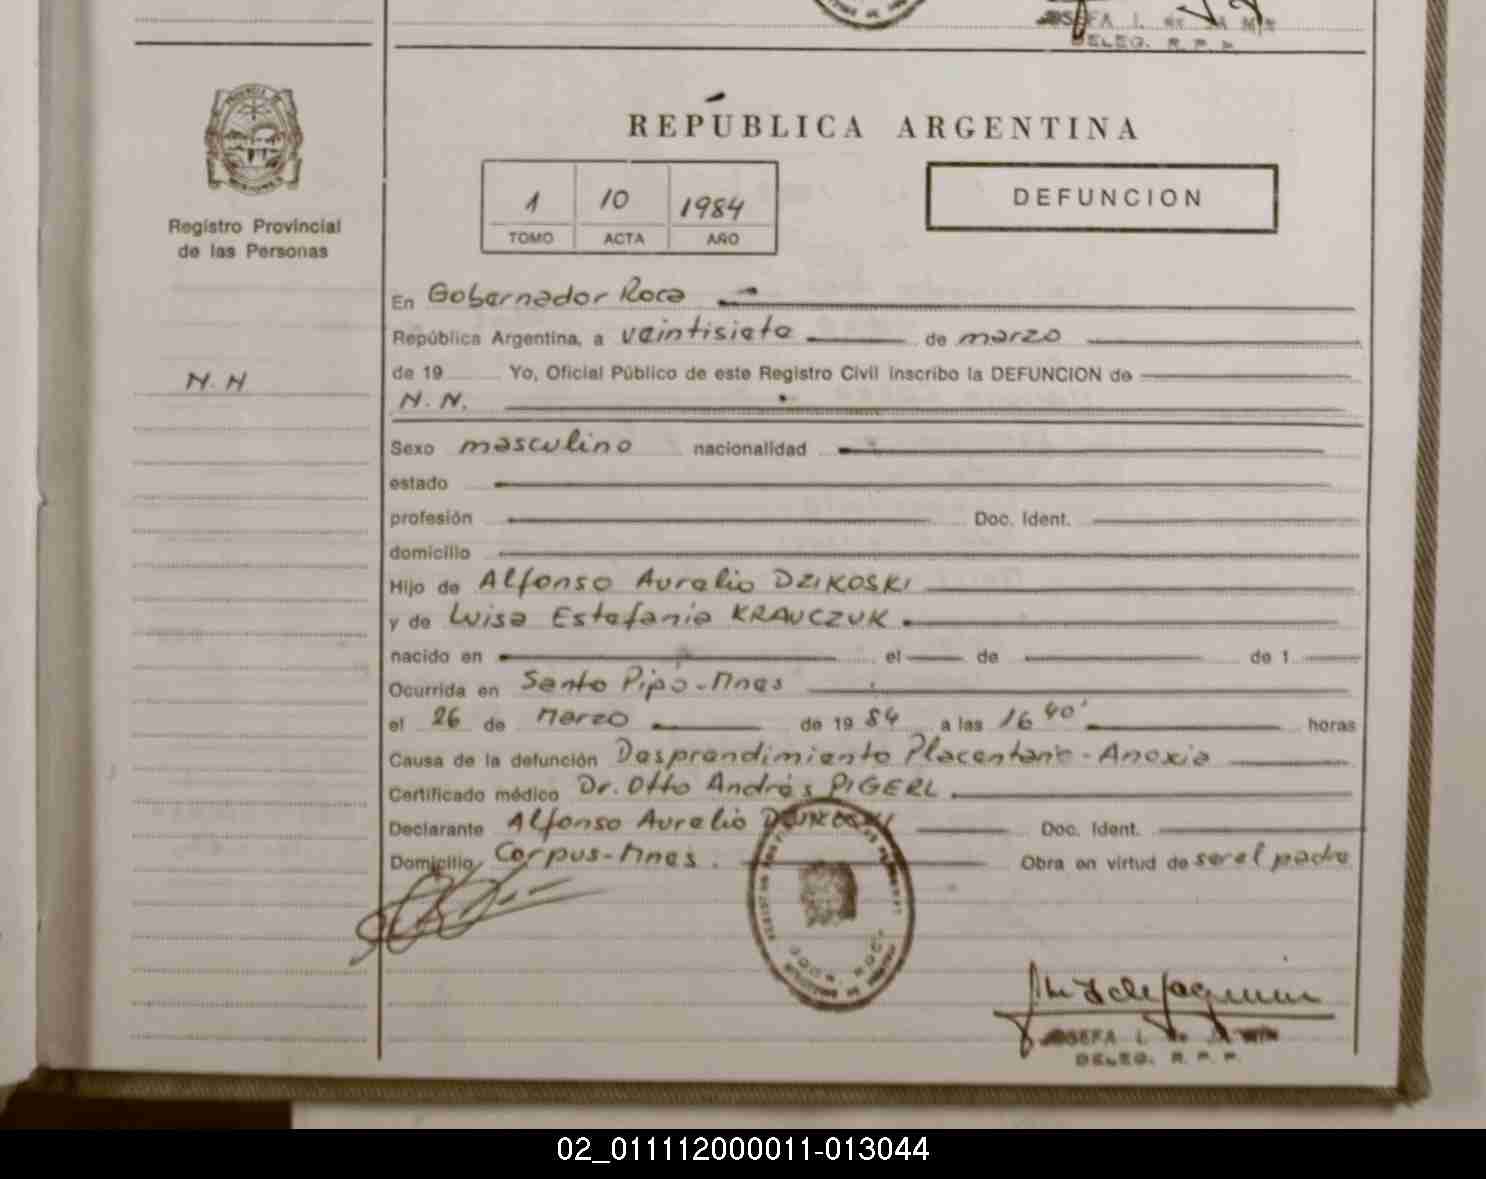 DELEG. R. P. P.
REPÚBLICA ARGENTINA
Registro Provincial
de las Personas
1 10 1984
TOMO ACTA AÑO
DEFUNCION
En Gobernador Roca
República Argentina, a veintisiete de marzo
de 19 Yo, Oficial Público de este Registro Civil inscribo la DEFUNCION de
N. N
N. N.
Sexo masculino nacionalidad
estado
profesión Doc. Ident.
domicilio
Hijo de Alfonso Aurelio DZIKOSKI
y de Luisa Estefania KRAUCZUK
nacido en el de de 1
Ocurrida en Santo Pipó-Mnes
el 26 de Marzo de 19 84 a las 16 40' horas
Causa de la defunción Desprendimiento Placentario - Anoxia
Certificado médico Dr. Otto Andrés PIGERL
Declarante Alfonso Aurelio Doc. Ident.
Domicilio Corpus-Mnes. Obra en virtud de ser el padre
GOOR. ROCA
DELEG. R. P. P.
02_011112000011-013044